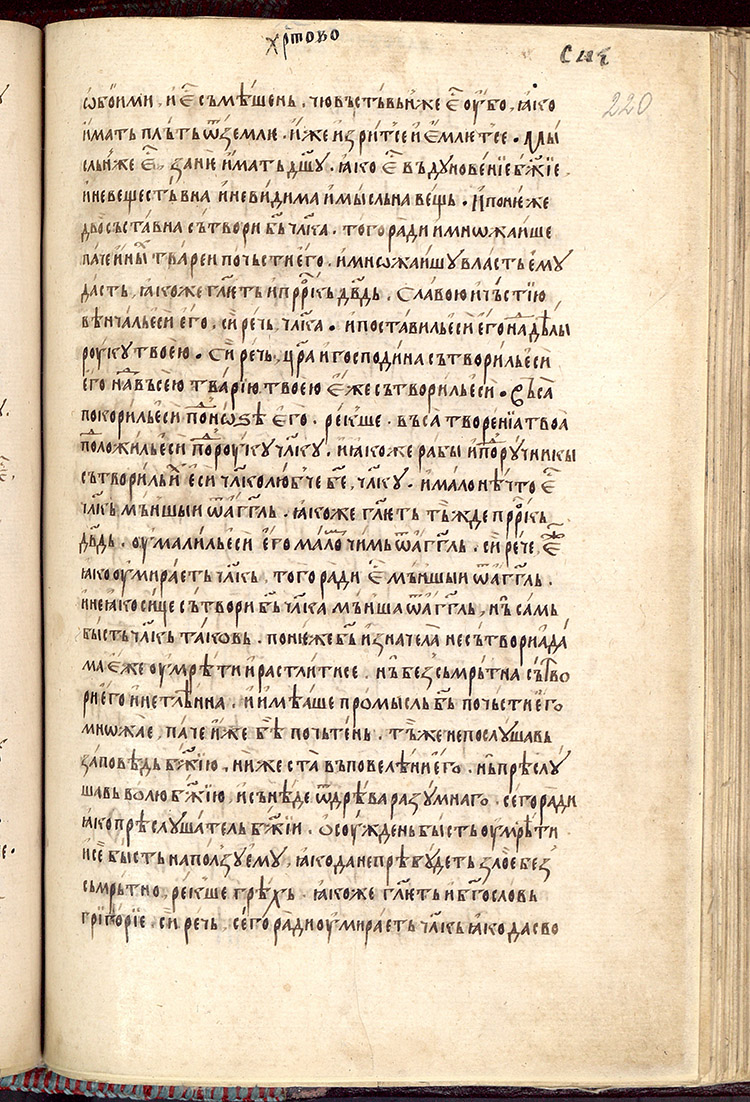 хр҃тово
220
ѡбои́ми, и е҃ съмѣ́шень, чювъ́ствьнже е҃ оу҆́бо, ꙗ҆́ко
и҆́мать плъ́ть ѿ землю . и҆́же и҆ зри́тсе и҆ е҆́млютсе . Мы́
сльн́же е҃, зан́ю и҆́мать дш҃у . ꙗ҆́ко е҃ въдунове́нїе бж҃їе,
и҆ невещестъ́вна и҆ неви́дима и҆ мы́сльна ве́щь . И҆ поню́же
двосъста́вна сътвори бь҃ чл҃ка . того ра́ди и҆ мнѡжа́ише
па́че и҆ны́ твареи почьсти е҆го . и҆ мнѡжа́ишу вла́сть е҆му
да́сть, ꙗ҆́коже гл҃ть и҆ прⷪ҇ркь дв҃дь . Сла́вою и҆ чъ́стїю
вѣнча́ль е҆си е҆го . си́ речь, чл҃ка . и҆ поста́виль е҆си е҆го на дѣлы
роуку твоею . Си́ речь, цр҃а и҆ господи́на сътвори́ль е҆си
е҆го на въсе́ю тва́рїю твоею е҆́же сътвори́ль е҆си . Въ́са
покори́ль е҆си по нѡѕѣ е҆го . ре́кше . въса творе́нїа твоа
положи́ль е҆си по роуку чл҃ку . и҆ ꙗ҆́коже рабы и҆ пору́чникы
сътвори́ль и҆́ е҆си чл҃колю́бче бе҃, чл҃ку . и҆ ма́ло нѣ́что е҃
чл҃кь мъ́ншыи ѿ а҆гг҃ль . ꙗ҆́коже гл҃ть тъ́жде прⷪ҇ркь
дв҃дь . оу҆ма́лиль е҆си е҆го ма́ло чимь ѿ а҆гг҃ль . си́ рече,
ꙗ҆́ко оу҆мира́еть чл҃кь, того ра́ди е҃ мъ́ншыи ѿ а҆гг҃ль .
и҆ не ꙗ҆́ко си́це сътвори бь҃ чл҃ка мъ́нша ѿ а҆гг҃ль, нъ̀ са́мь
бы́сть чл҃кь та́ковь . поню́же бь҃ и҆знача́ла не сътвори а҆да́
ма е҆́же оу҆мрѣ́ти и҆ растлити́се . нъ̀ без̾смръ́тна сътво
ри е҆го и҆ нетлѣ́нна . и҆ и҆мѣ́аше про́мысль бь҃ почьсти е҆го
мнѡжа́е, па́че и҆́же бѣ̀ почьте́нь . тъ́же не послу́шавь
за́повѣдь бж҃їю, ниже ста̀ въ повелѣ́ни е҆го . нь̀ прѣслу́
шавь во́лю бж҃їю, и҆ сънѣ́де ѿ дрѣ́ва разу́мнаго . сего ра́ди
ꙗ҆́ко прѣслу́шатель бж҃їи . ѻ҆соу́ждень бы́сть оу҆мрѣ́ти
и҆ се́ бы́сть на по́лзу е҆му, ꙗ҆́ко да не прѣбу́деть зло́е без̾
съмръ́тно, ре́кше грѣ́хь . ꙗ҆́коже гл҃ть и҆ бг҃осло́вь
григо́рїе . си́ речь, сего ра́ди оу҆мира́еть чл҃кь ꙗ҆́ко да сво